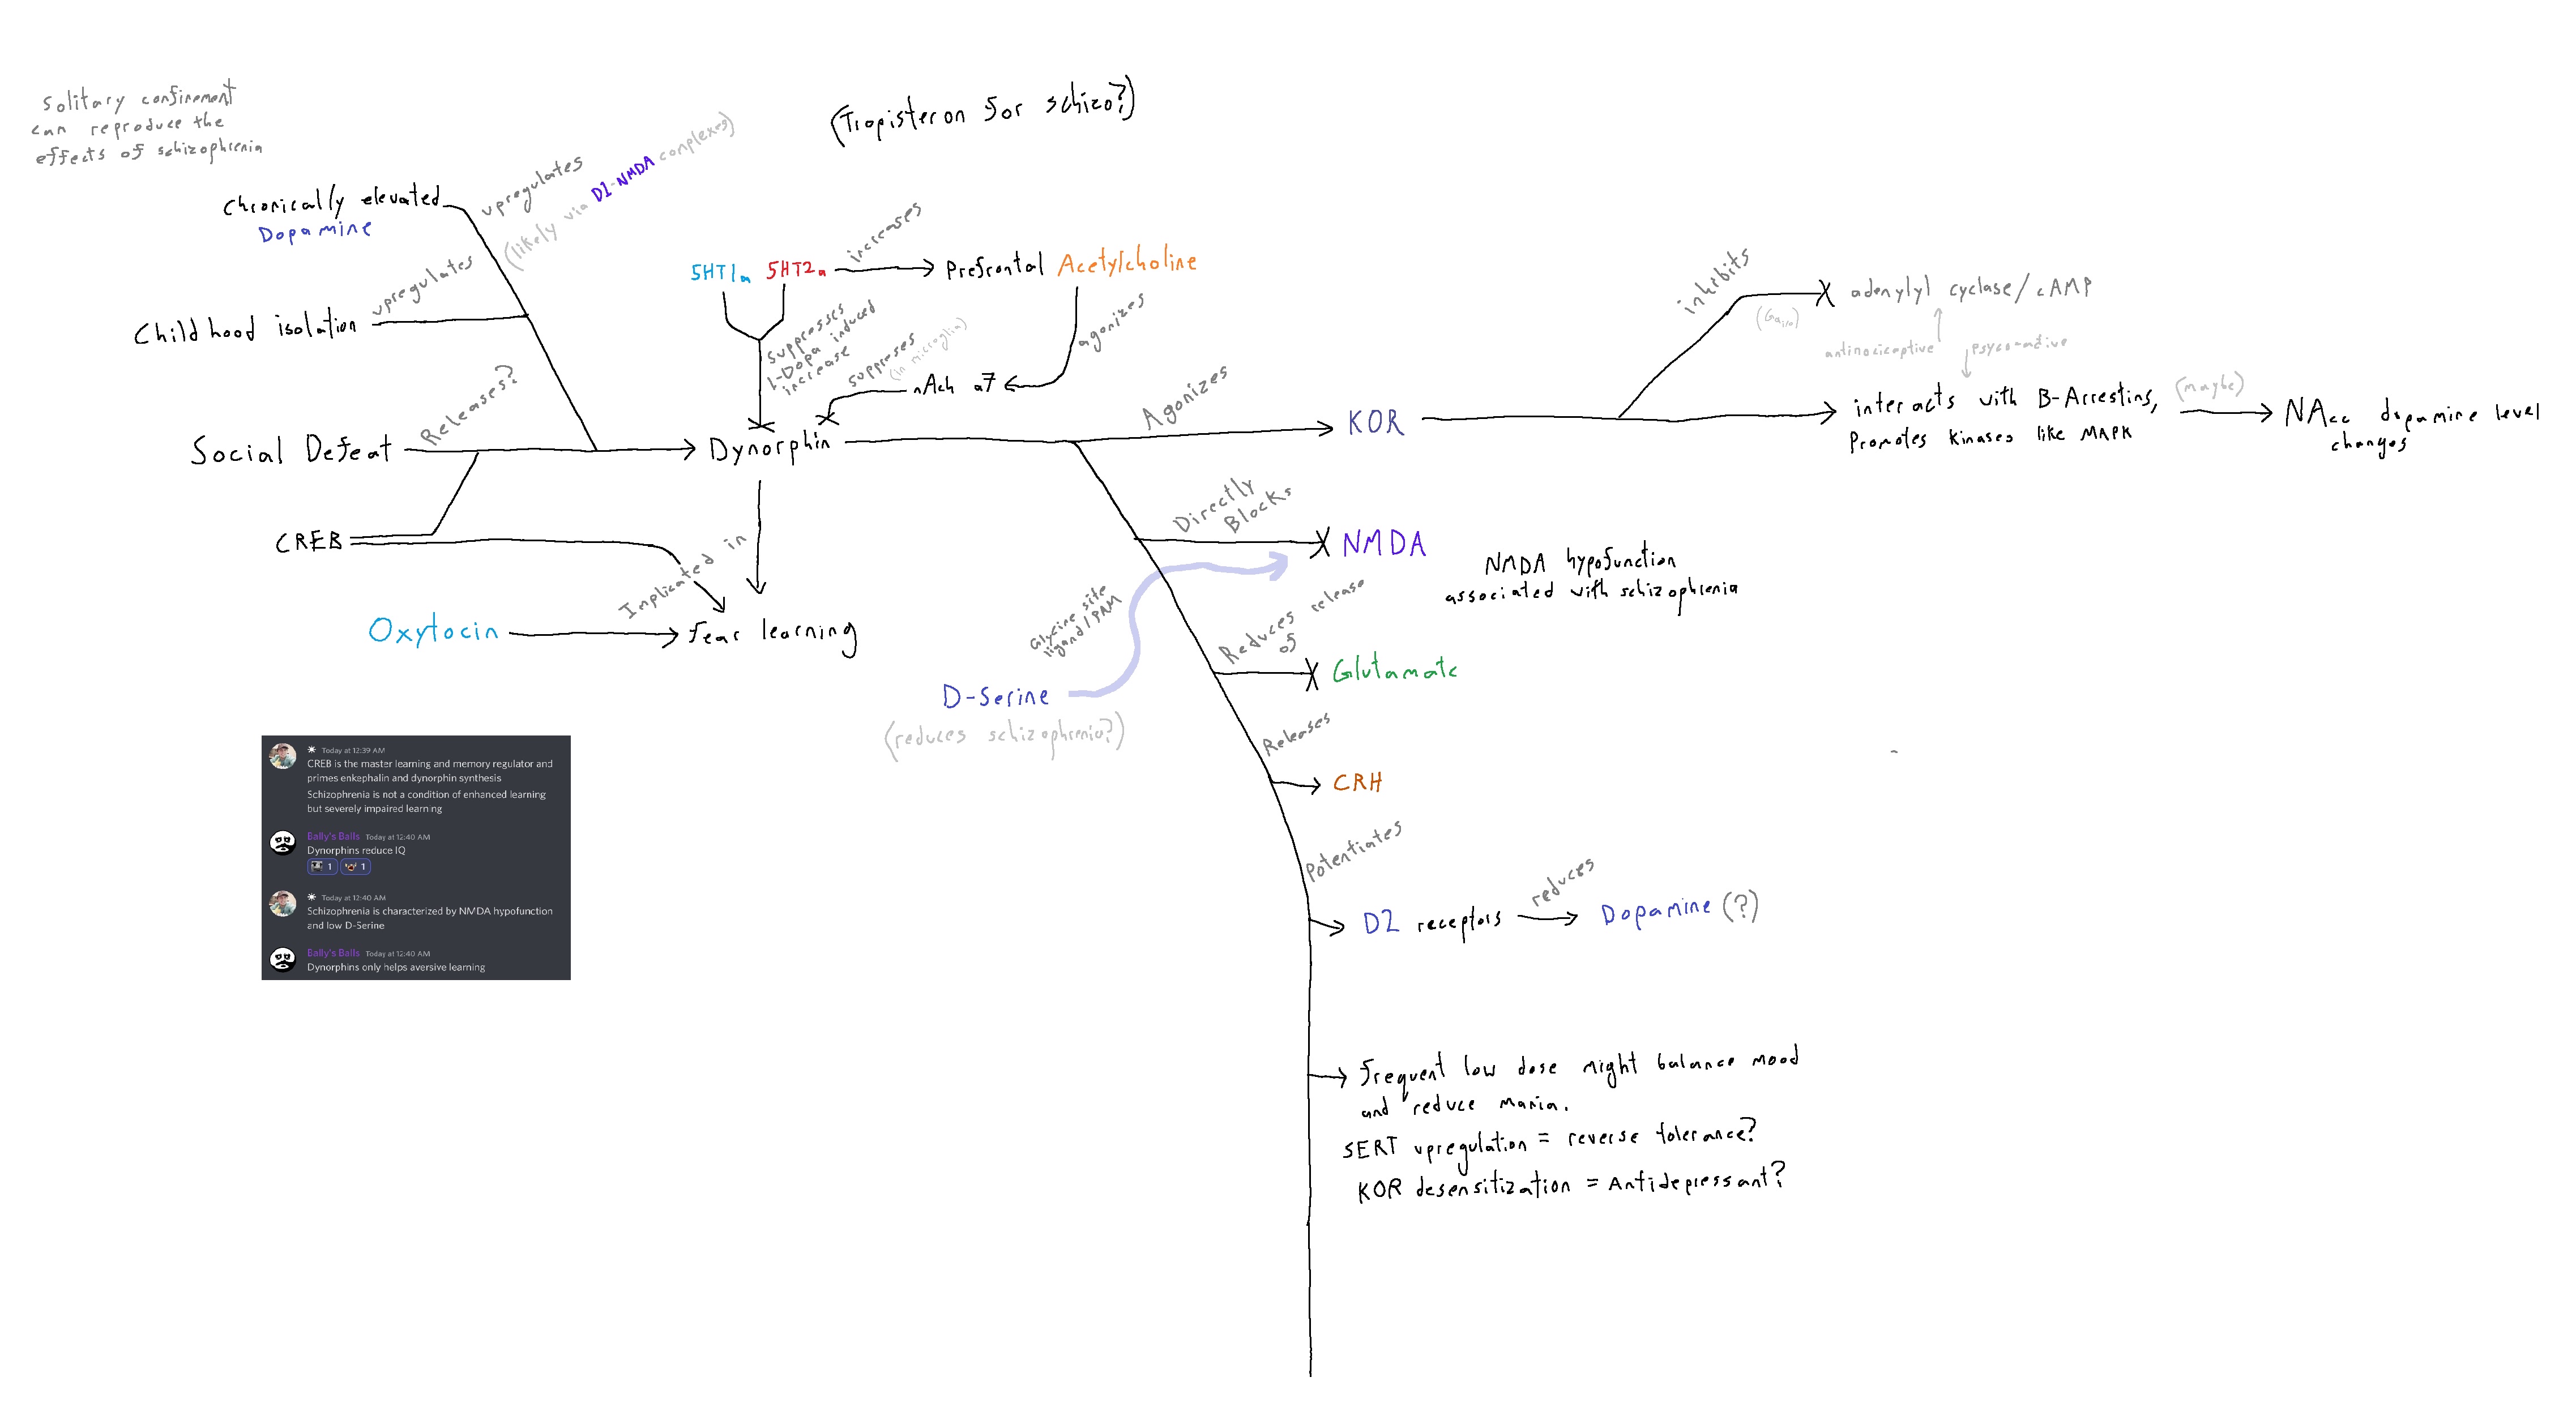 Solitary confinement
can reproduce the
effects of schizophrenia
(Tropisteron for schizo?)
Chronically elevated
Dopamine
upregulates
(likely via D1-NMDA complexes)
Childhood isolation
upregulates
Social Defeat
Releases?
CREB
Oxytocin
Implicated in
fear learning
5HT1a 5HT2a
increases
Prefrontal Acetylcholine
suppresses
l-Dopa induced
increase
suppreses
(in microglia)
agonizes
nAch a7
Dynorphin
Agonizes
KOR
inhibits
(Gai/o)
adenylyl cyclase/cAMP
antinociceptive
psycoactive
interacts with B-Arrestins,
Promotes kinases like MAPK
(maybe)
NAcc dopamine level
changes
Directly
Blocks
NMDA
NMDA hypofunction
associated with schizophrenia
Glycine site
ligand/PAM
D-Serine
(reduces schizophrenia?)
Reduces release
of
Glutamate
Releases
CRH
Potentiates
D2 receptors
reduces
Dopamine (?)
Frequent low dose might balance mood
and reduce mania.
SERT upregulation = reverse tolerance?
KOR desensitization = Antidepressant?
Today at 12:39 AM
CREB is the master learning and memory regulator and
primes enkephalin and dynorphin synthesis
Schizophrenia is not a condition of enhanced learning
but severely impaired learning
Bally's Balls Today at 12:40 AM
Dynorphins reduce IQ
1 1
Today at 12:40 AM
Schizophrenia is characterized by NMDA hypofunction
and low D-Serine
Bally's Balls Today at 12:40 AM
Dynorphins only helps aversive learning